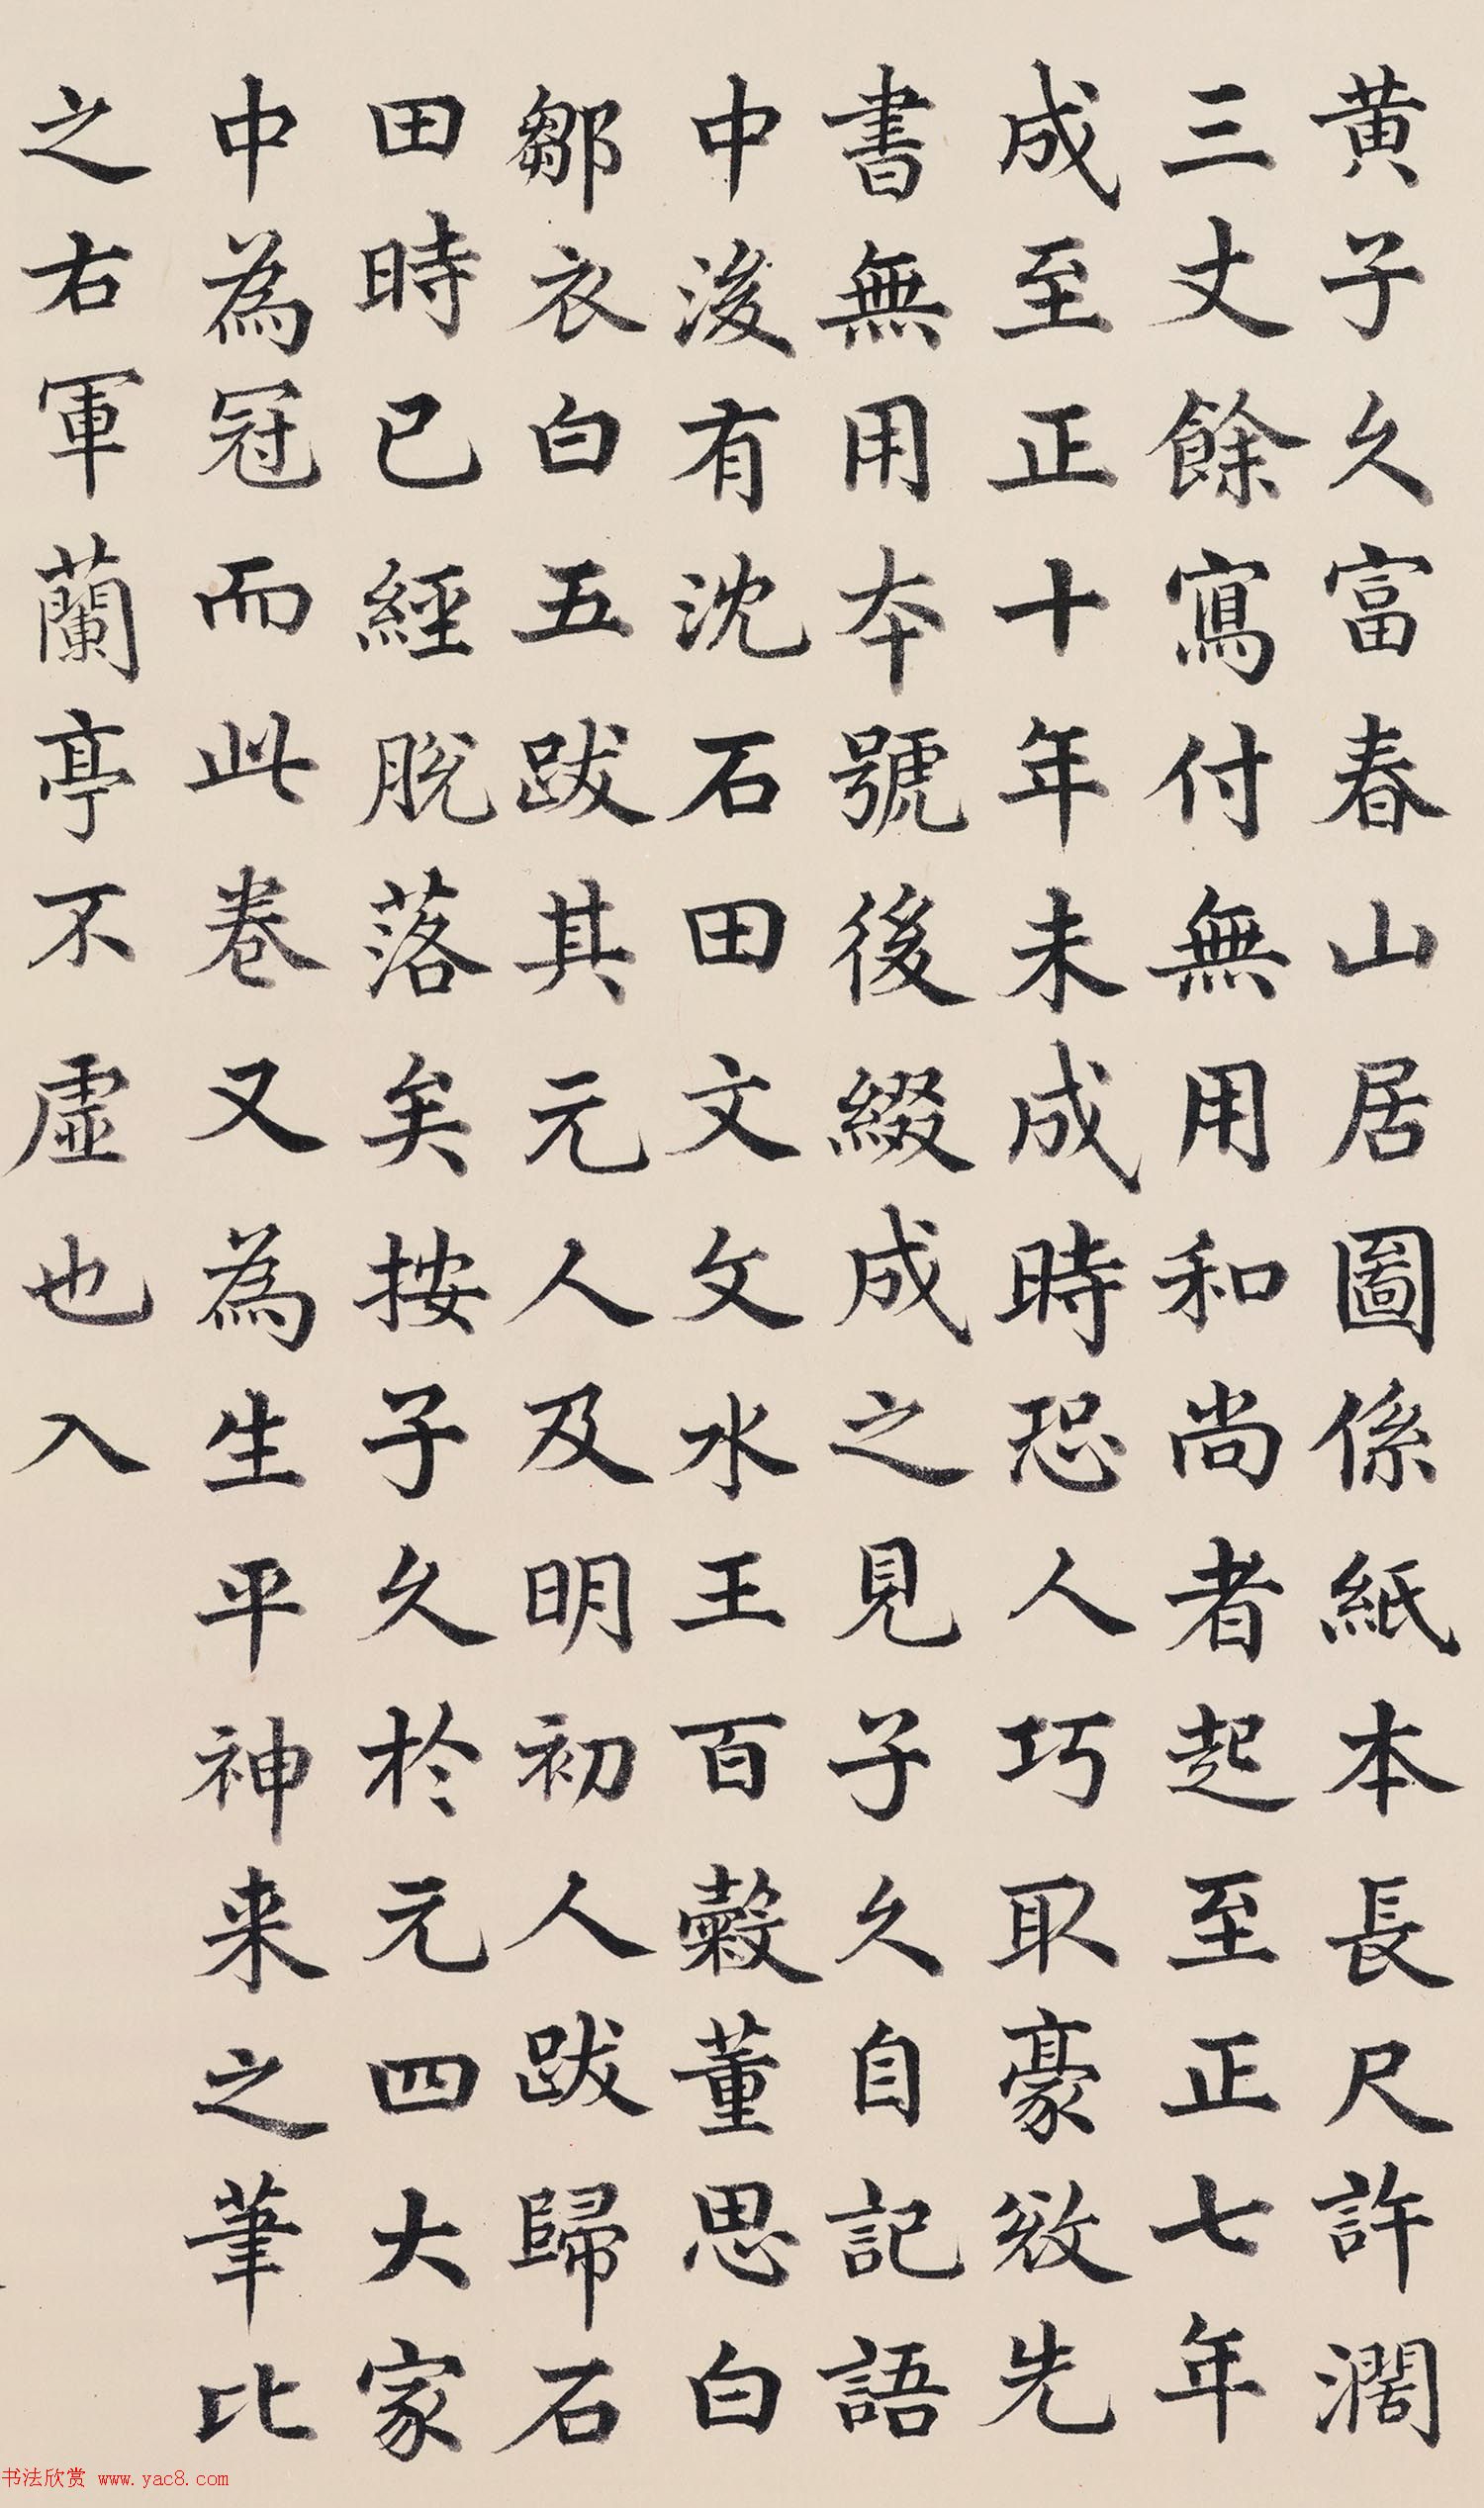 黄子久富春山居圖係紙本長尺許濶
三丈餘寫付無用和尚者起至正七年
成至正十年未成時恐人巧取豪敓先
書無用本號後綴成之見子久自記語
中後有沈石田文文水王百穀董思白
鄒衣白五跋其元人及明初人跋歸石
田時已經脫落矣按子久於元四大家
中為冠而此卷又為生平神来之筆比
之右軍蘭亭不虛也入
书法欣赏 www.yac8.com